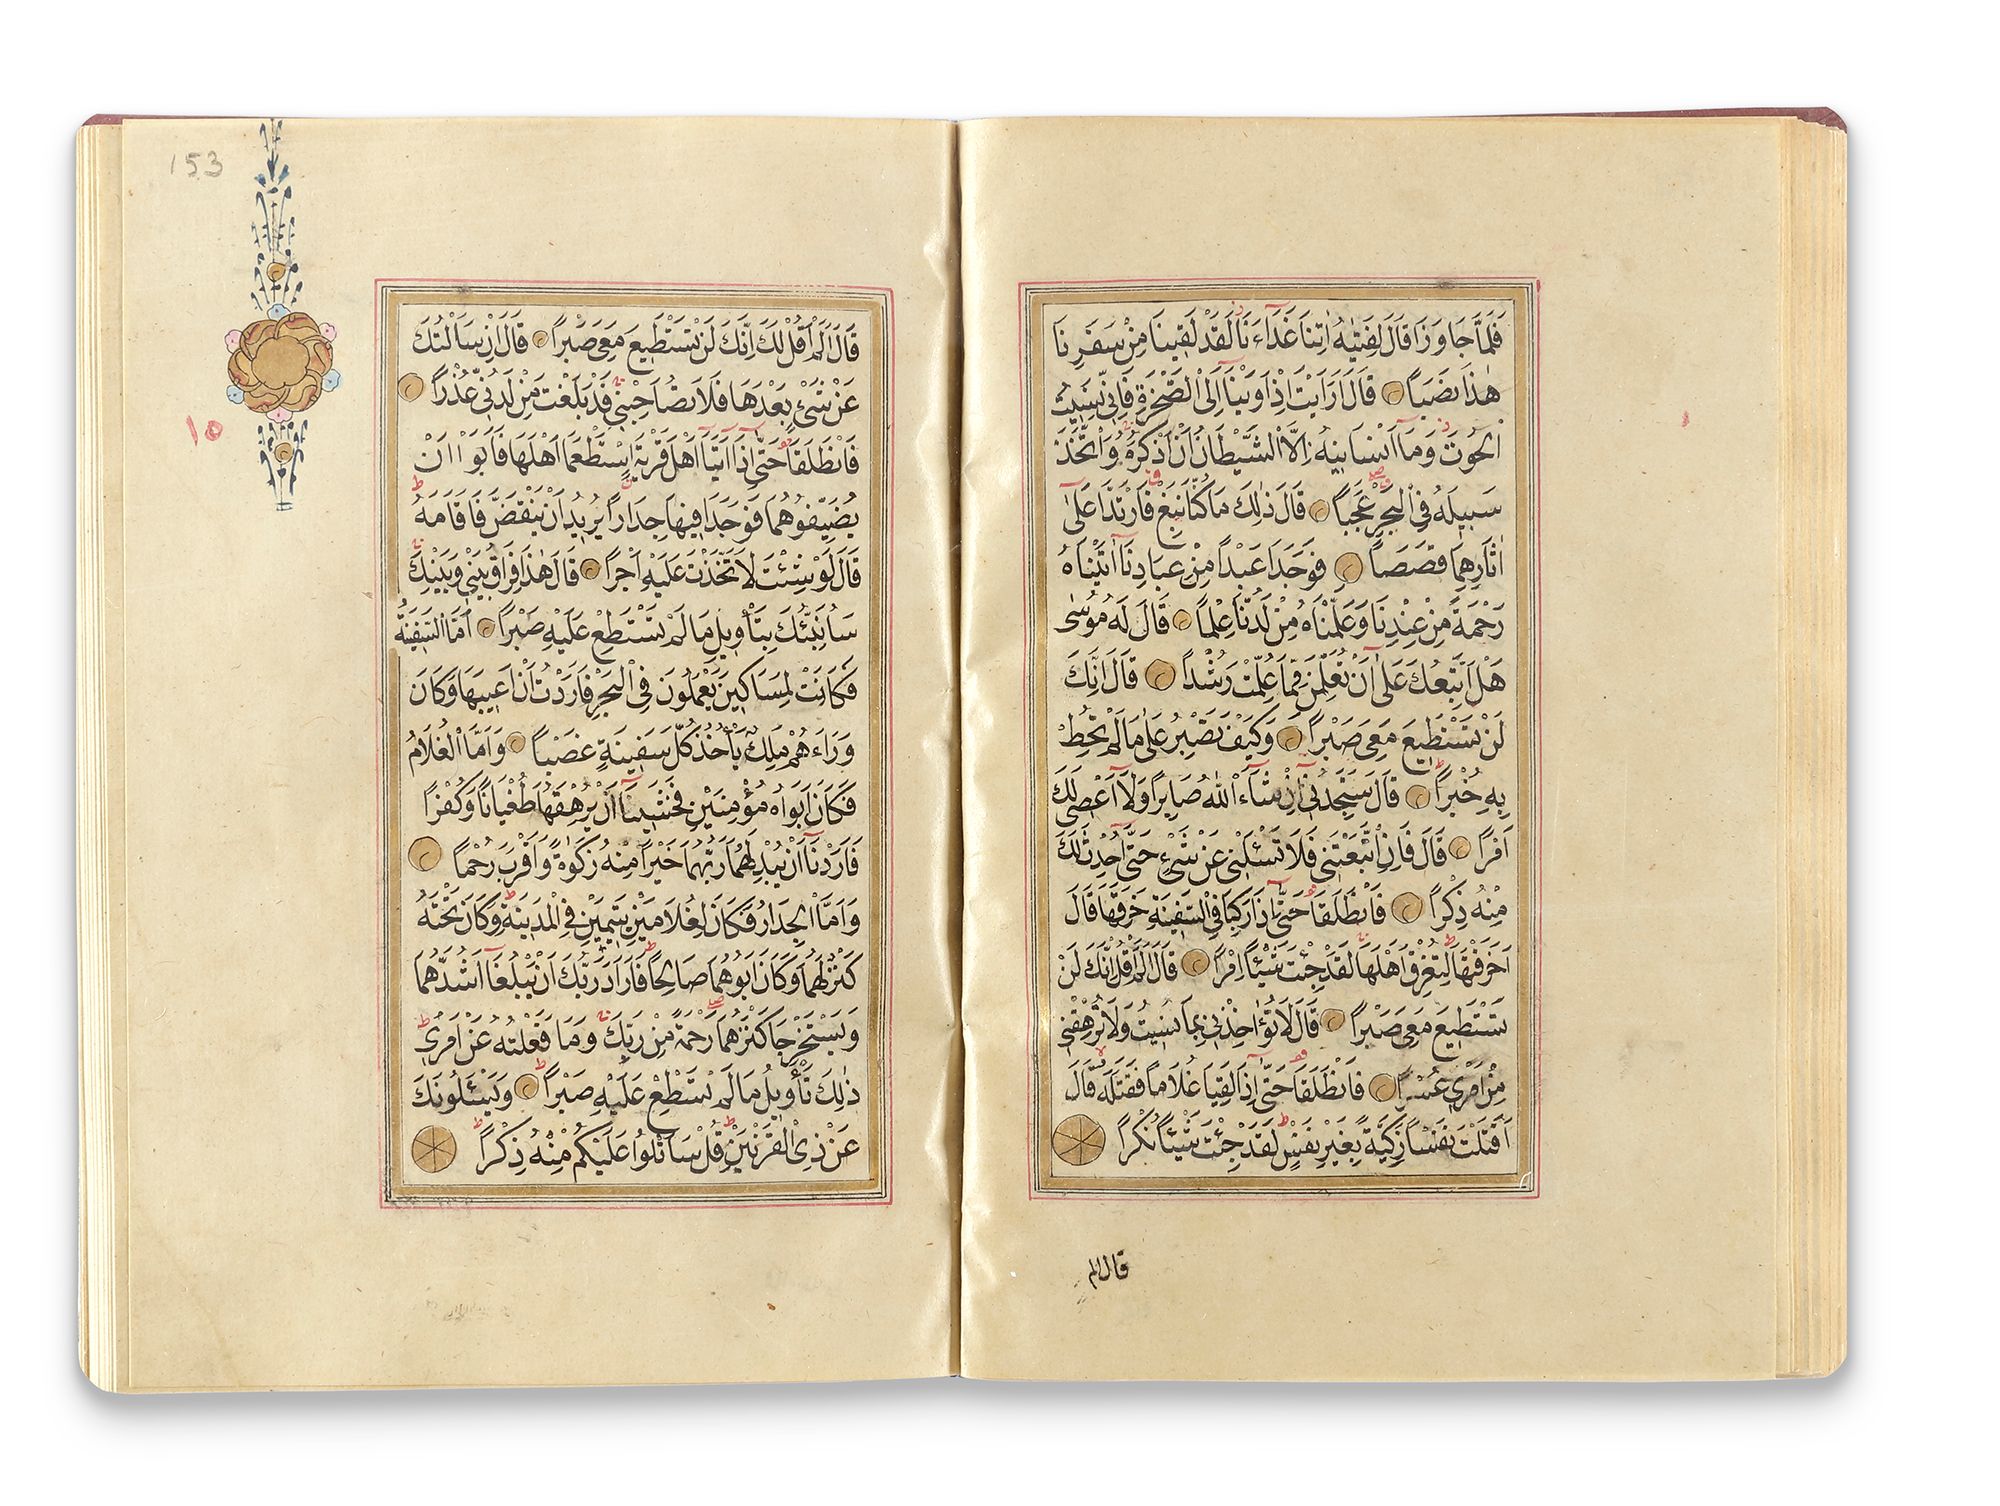 فَلَمَّا جَاوَزَا قَالَ لِفَتٰيهُ اٰتِنَا غَدَٓاءَنَا لَقَدْ لَقِينَا مِنْ سَفَرِنَا
هٰذَا نَصَبًا قَالَ اَرَاَيْتَ اِذْ اَوَيْنَٓا اِلَى الصَّخْرَةِ فَاِنِّى نَسِيتُ
الْحُوتَ وَمَٓا اَنْسَانِيهُ اِلَّا الشَّيْطَانُ اَنْ اَذْكُرَهُ وَاتَّخَذَ
سَبِيلَهُ فِى الْبَحْرِ عَجَبًا قَالَ ذٰلِكَ مَا كُنَّا نَبْغِ فَارْتَدَّا عَلٰٓى
اٰثَارِهِمَا قَصَصًا فَوَجَدَا عَبْدًا مِنْ عِبَادِنَٓا اٰتَيْنَاهُ
رَحْمَةً مِنْ عِنْدِنَا وَعَلَّمْنَاهُ مِنْ لَدُنَّا عِلْمًا قَالَ لَهُ مُوسٰى
هَلْ اَتَّبِعُكَ عَلٰٓى اَنْ تُعَلِّمَنِ مِمَّا عُلِّمْتَ رُشْدًا قَالَ اِنَّكَ
لَنْ تَسْتَطِيعَ مَعِىَ صَبْرًا وَكَيْفَ تَصْبِرُ عَلٰى مَا لَمْ تُحِطْ
بِهِ خُبْرًا قَالَ سَتَجِدُنِٓى اِنْ شَٓاءَ اللّٰهُ صَابِرًا وَلَٓا اَعْصِى لَكَ
اَمْرًا قَالَ فَاِنِ اتَّبَعْتَنِى فَلَا تَسْئَلْنِى عَنْ شَىْءٍ حَتّٰٓى اُحْدِثَ لَكَ
مِنْهُ ذِكْرًا فَانْطَلَقَا حَتّٰٓى اِذَا رَكِبَا فِى السَّفِينَةِ خَرَقَهَا قَالَ
اَخَرَقْتَهَا لِتُغْرِقَ اَهْلَهَا لَقَدْ جِئْتَ شَيْئًا اِمْرًا قَالَ اَلَمْ اَقُلْ اِنَّكَ لَنْ
تَسْتَطِيعَ مَعِىَ صَبْرًا قَالَ لَا تُؤَاخِذْنِى بِمَا نَسِيتُ وَلَا تُرْهِقْنِى
مِنْ اَمْرِى عُسْرًا فَانْطَلَقَا حَتّٰٓى اِذَا لَقِيَا غُلَامًا فَقَتَلَهُ قَالَ
اَقَتَلْتَ نَفْسًا زَكِيَّةً بِغَيْرِ نَفْسٍ لَقَدْ جِئْتَ شَيْئًا نُكْرًا
قال الم
153
١٥
قَالَ اَلَمْ اَقُلْ لَكَ اِنَّكَ لَنْ تَسْتَطِيعَ مَعِىَ صَبْرًا قَالَ اِنْ سَاَلْتُكَ
عَنْ شَىْءٍ بَعْدَهَا فَلَا تُصَاحِبْنِى قَدْ بَلَغْتَ مِنْ لَدُنِّى عُذْرًا
فَانْطَلَقَا حَتّٰٓى اِذَٓا اَتَيَٓا اَهْلَ قَرْيَةٍ اسْتَطْعَمَٓا اَهْلَهَا فَاَبَوْا اَنْ
يُضَيِّفُوهُمَا فَوَجَدَا فِيهَا جِدَارًا يُرِيدُ اَنْ يَنْقَضَّ فَاَقَامَهُ
قَالَ لَوْ شِئْتَ لَاتَّخَذْتَ عَلَيْهِ اَجْرًا قَالَ هٰذَا فِرَاقُ بَيْنِى وَبَيْنِكَ
سَاُنَبِّئُكَ بِتَأْوِيلِ مَا لَمْ تَسْتَطِعْ عَلَيْهِ صَبْرًا اَمَّا السَّفِينَةُ
فَكَانَتْ لِمَسَاكِينَ يَعْمَلُونَ فِى الْبَحْرِ فَاَرَدْتُ اَنْ اَعِيبَهَا وَكَانَ
وَرَاءَهُمْ مَلِكٌ يَأْخُذُ كُلَّ سَفِينَةٍ غَصْبًا وَاَمَّا الْغُلَامُ
فَكَانَ اَبَوَاهُ مُؤْمِنَيْنِ فَخَشِينَٓا اَنْ يُرْهِقَهُمَا طُغْيَانًا وَكُفْرًا
فَاَرَدْنَٓا اَنْ يُبْدِلَهُمَا رَبُّهُمَا خَيْرًا مِنْهُ زَكٰوةً وَاَقْرَبَ رُحْمًا
وَاَمَّا الْجِدَارُ فَكَانَ لِغُلَامَيْنِ يَتِيمَيْنِ فِى الْمَدِينَةِ وَكَانَ تَحْتَهُ
كَنْزٌ لَهُمَا وَكَانَ اَبُوهُمَا صَالِحًا فَاَرَادَ رَبُّكَ اَنْ يَبْلُغَٓا اَشُدَّهُمَا
وَيَسْتَخْرِجَا كَنْزَهُمَا رَحْمَةً مِنْ رَبِّكَ وَمَا فَعَلْتُهُ عَنْ اَمْرِى
ذٰلِكَ تَأْوِيلُ مَا لَمْ تَسْطِعْ عَلَيْهِ صَبْرًا وَيَسْئَلُونَكَ
عَنْ ذِى الْقَرْنَيْنِ قُلْ سَاَتْلُوا عَلَيْكُمْ مِنْهُ ذِكْرًا